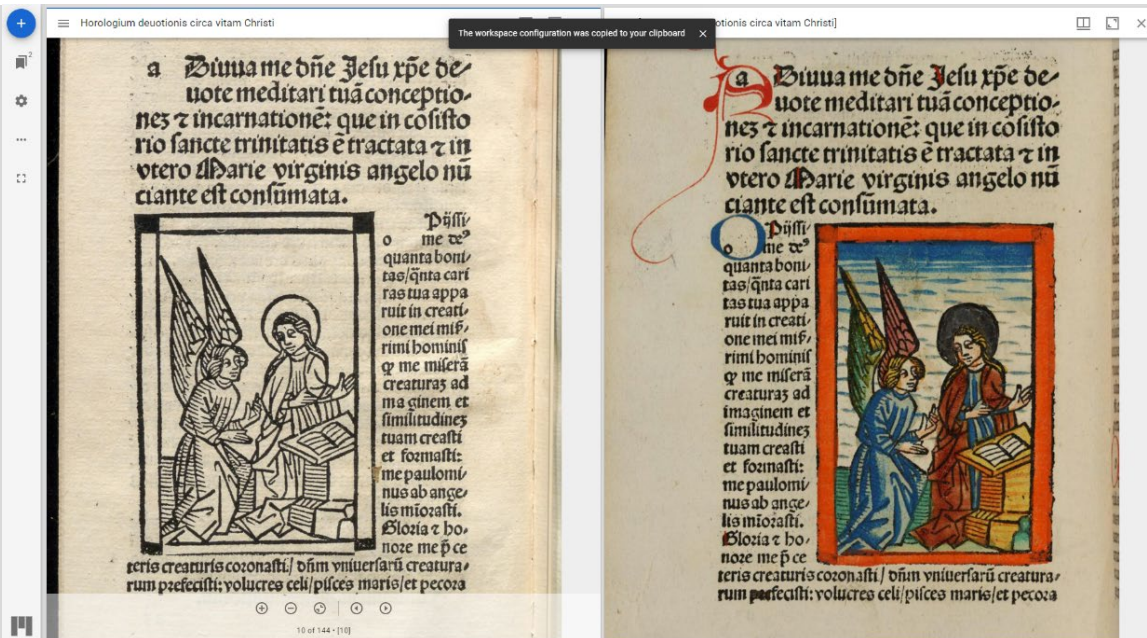 Horologium deuotionis circa vitam Christi
The workspace configuration was copied to your clipboard
otionis circa vitam Christi]
2
a Diuua me dn̄e Jesu xp̄e de⸗
uote meditari tuā conceptio⸗
nez ⁊ incarnationē: que in cōsisto
rio sancte trinitatis ē tractata ⁊ in
vtero Marie virginis angelo nū
ciante est consūmata.
Pijssi⸗
o me deꝰ
quanta boni⸗
tas/q̄nta cari
ras tua appa
ruit in creati⸗
one mei mis̄⸗
rimi hominis
qꝫ me miserā
creaturaz ad
ma ginem et
similitudinez
tuam creasti
et formasti:
me paulomi⸗
nus ab ange⸗
lis mīorasti.
Gloria ⁊ ho⸗
nore me p̄ ce
teris creaturis coronasti/ dn̄m vniuersarū creatura⸗
rum prefecisti: volucres celi/pisces maris/et pecora
10 of 144 • [10]
a Diuua me dn̄e Jesu xp̄e de⸗
uote meditari tuā conceptio⸗
nez ⁊ incarnationē: que in cōsisto
rio sancte trinitatis ē tractata ⁊ in
vtero Marie virginis angelo nū
ciante est consūmata.
O Pijssi⸗
o me deꝰ
quanta boni⸗
tas/q̄nta cari
tas tua appa
ruit in creati⸗
one mei mis̄⸗
rimi hominis
qꝫ me miserā
creaturaz ad
imaginem et
similitudinez
tuam creasti
et formasti:
me paulomi⸗
nus ab ange⸗
lis mīorasti.
Gloria ⁊ ho⸗
nore me p̄ ce
teris creaturis coronasti/ dn̄m vniuersarū creatura⸗
rum prefecisti: volucres celi/pisces maris/et pecora